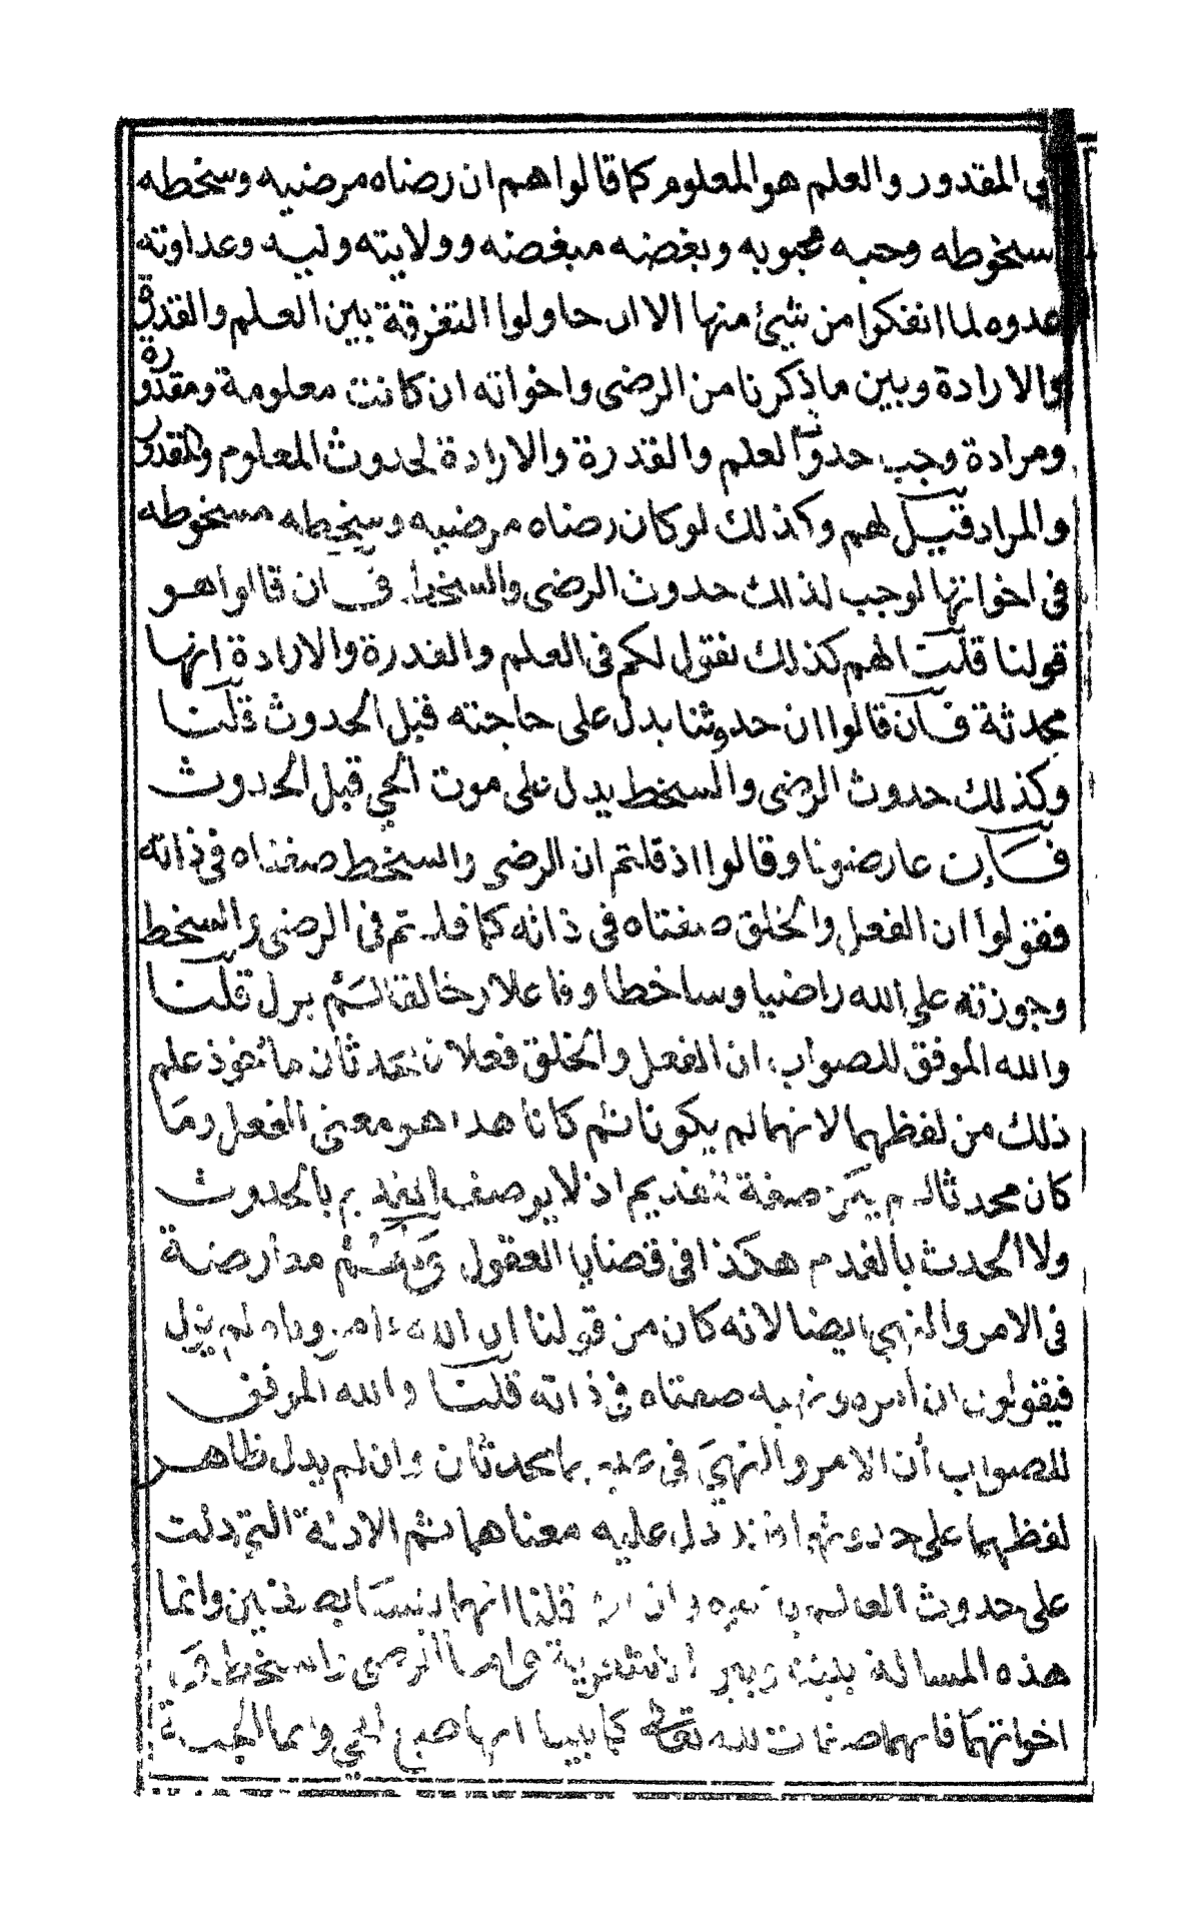 المقدور والعلم هو المعلوم كما قالوا هم ان رضاه مرضيه وسخطه
سخوطه وحبه محبوبه وبغضه مبغضه وولايته وليه وعداوته
عدوه لما انفكوا من شيئ منها الا ان حاولوا التفرقة بين العلم والقدرة
والارادة وبين ما ذكرنا من الرضى واخواته ان كانت معلومة ومقدور
ومرادة وجب حدوث العلم والقدرة والارادة لحدوث المعلوم والمقدور
والمراد قيل لهم وكذلك لو كان رضاه مرضيه وسخطه مسخوطه
في اخواتها لوجب لذلك حدوث الرضى والسخط فان قالوا هو
قولنا قلت لهم كذلك نقول لكم في العلم والقدرة والارادة انها
محدثة فان قالوا ان حدوثنا يدل على حاجته قبل الحدوث قلنا
وكذلك حدوث الرضى والسخط يدل على موت الحي قبل الحدوث
فإن عارضونا وقالوا اذ قلتم ان الرضى والسخط صفتاه في ذاته
فقولوا ان الفعل والخلق صفتاه في ذاته كما قلتم في الرضى والسخط
وجوزته على الله راضيا وساخطا وفاعلا وخالقا لم يزل قلنا
والله الموفق للصواب ان الفعل والخلق فعلان محدثان مأخوذ علم
ذلك من لفظهما لانهما لم يكونا ثم كانا هذا هو معنى الفعل وما
كان محدثا لم يكن صفة لقديم اذ لا يوصف القديم بالحدوث
ولا الحدث بالقدم هكذا في قضايا العقول معارضة
في الامر والنهي ايضا لانه كان من قولنا ان الله لم يزل
فيقولون ان امره ونهيه صفتاه في ذاته قلنا والله الموفق
للصواب أن الامر والنهي في محدثان وان لم يدل ظاهر
لفظهما على حدوثهما دل عليه معناهما ثم الادلة التي دلت
على حدوث العالم وان قلنا انهما ليستا بصفتين وانما
هذه المسالة بيننا وبين الاشعرية واما الرضى والسخط
اخواتهما فانهما صفات لله تعالى كما بينا الحي وانما